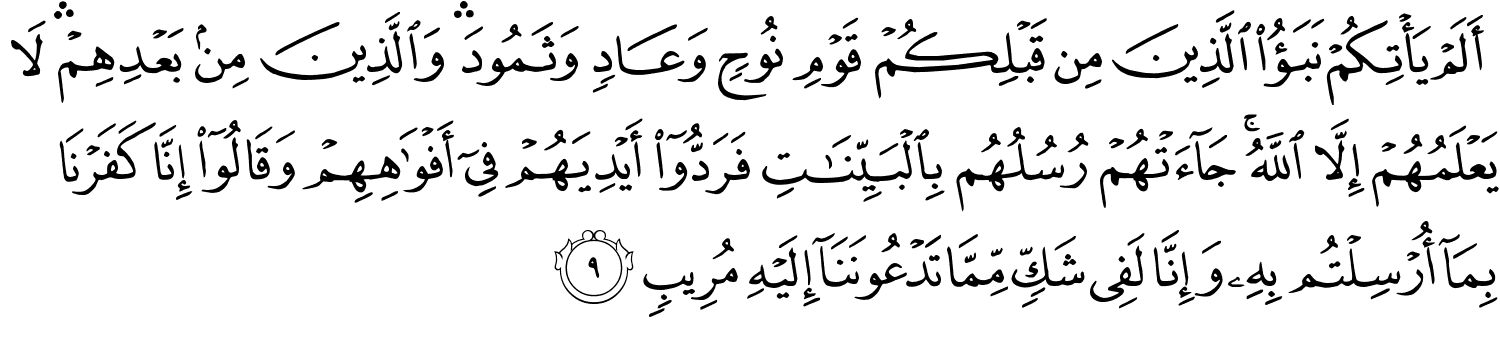 أَلَمۡ يَأۡتِكُمۡ نَبَؤُاْ ٱلَّذِينَ مِن قَبۡلِكُمۡ قَوۡمِ نُوحٖ وَعَادٖ وَثَمُودَۛ وَٱلَّذِينَ مِنۢ بَعۡدِهِمۡۛ لَا
يَعۡلَمُهُمۡ إِلَّا ٱللَّهُۚ جَآءَتۡهُمۡ رُسُلُهُم بِٱلۡبَيِّنَٰتِ فَرَدُّوٓاْ أَيۡدِيَهُمۡ فِيٓ أَفۡوَٰهِهِمۡ وَقَالُوٓاْ إِنَّا كَفَرۡنَا
بِمَآ أُرۡسِلۡتُم بِهِۦ وَإِنَّا لَفِي شَكّٖ مِّمَّا تَدۡعُونَنَآ إِلَيۡهِ مُرِيبٖ ٩